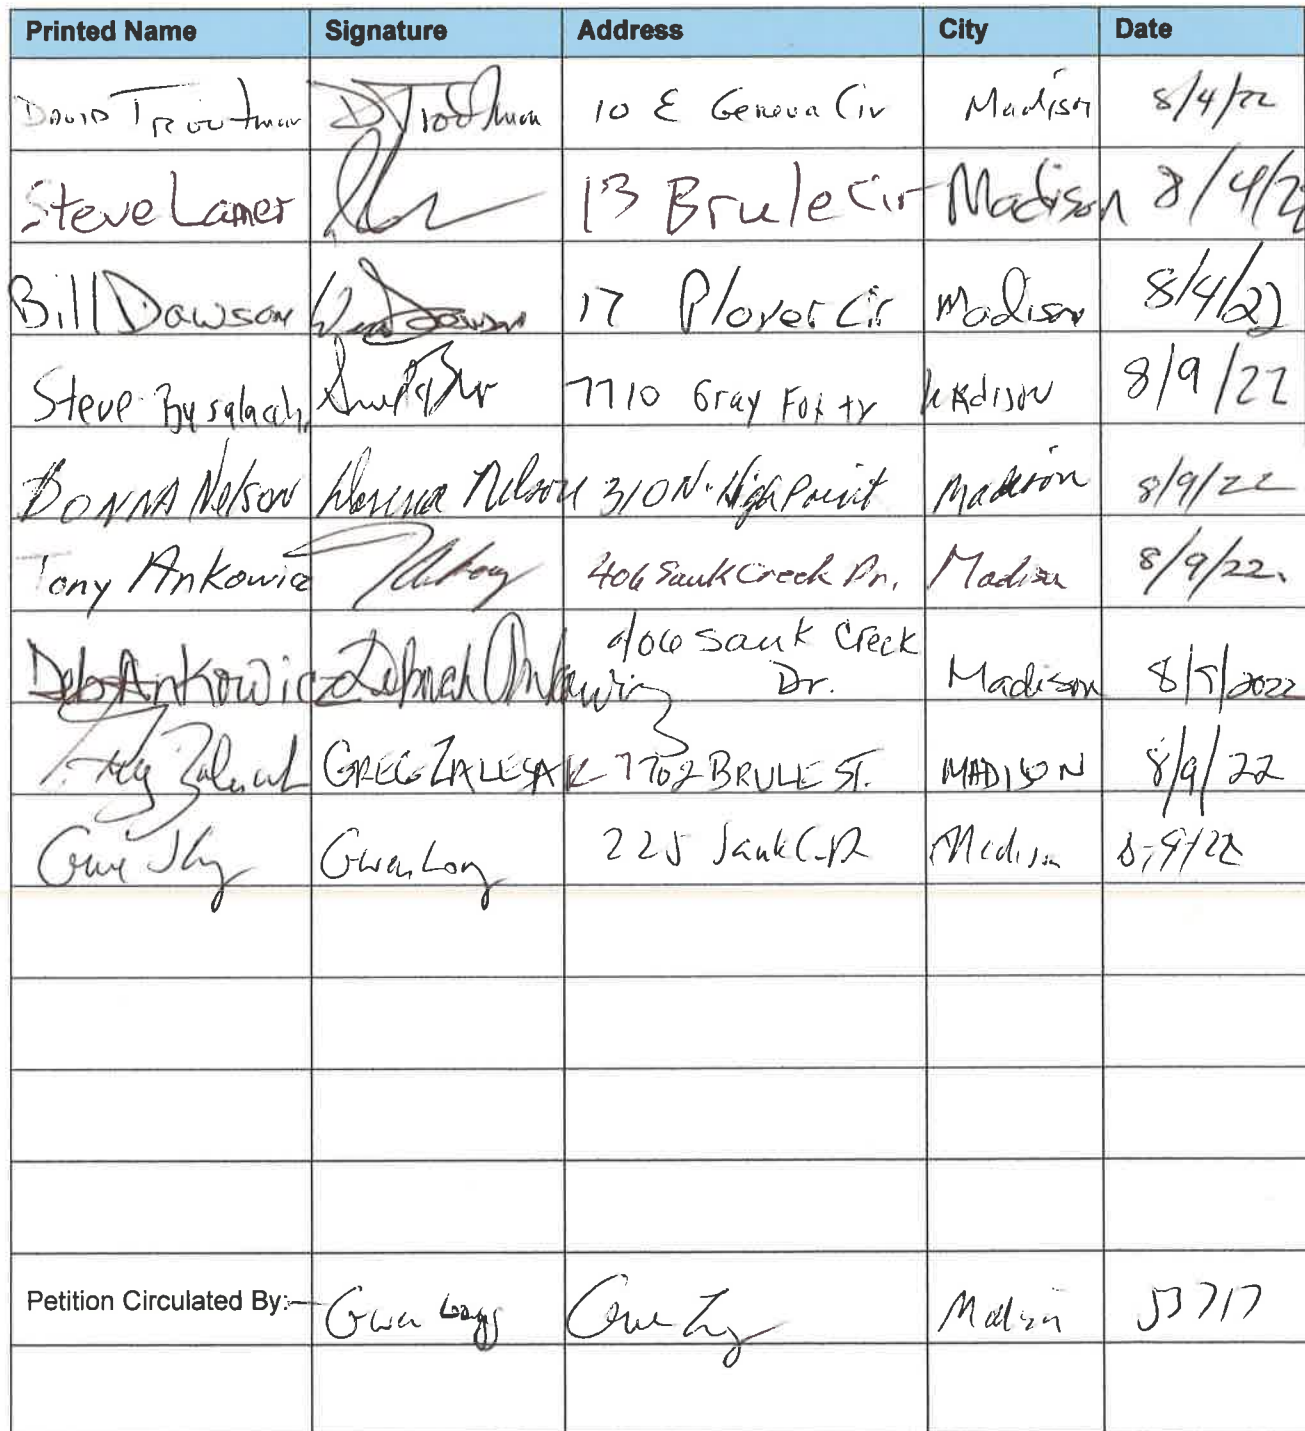 Printed Name Signature Address City Date
David Troutman DTroutman 10 E Geneva Cir Madison 8/4/22
Steve Lamer 13 Brule Cir Madison 8/4/22
Bill Dawson Dawson 17 Plover Cir Madison 8/4/22
Steve 7710 Gray Fox tr Madison 8/9/22
DONNA Nelson Donna Nelson 310 N. High Point Madison 8/9/22
Tony Ankowicz 406 Sauk Creek Dr. Madison 8/9/22.
406 Sauk Creek
Deb Ankowicz Deborah Ankowicz Dr. Madison 8/9/2022
Greg Zalesak GREG ZALESAK 7702 BRULE ST. MADISON 8/9/22
Gwen Long 225 Sauk C. Dr Madison 8-9/22
Petition Circulated By: Gwen Long Madison 53717